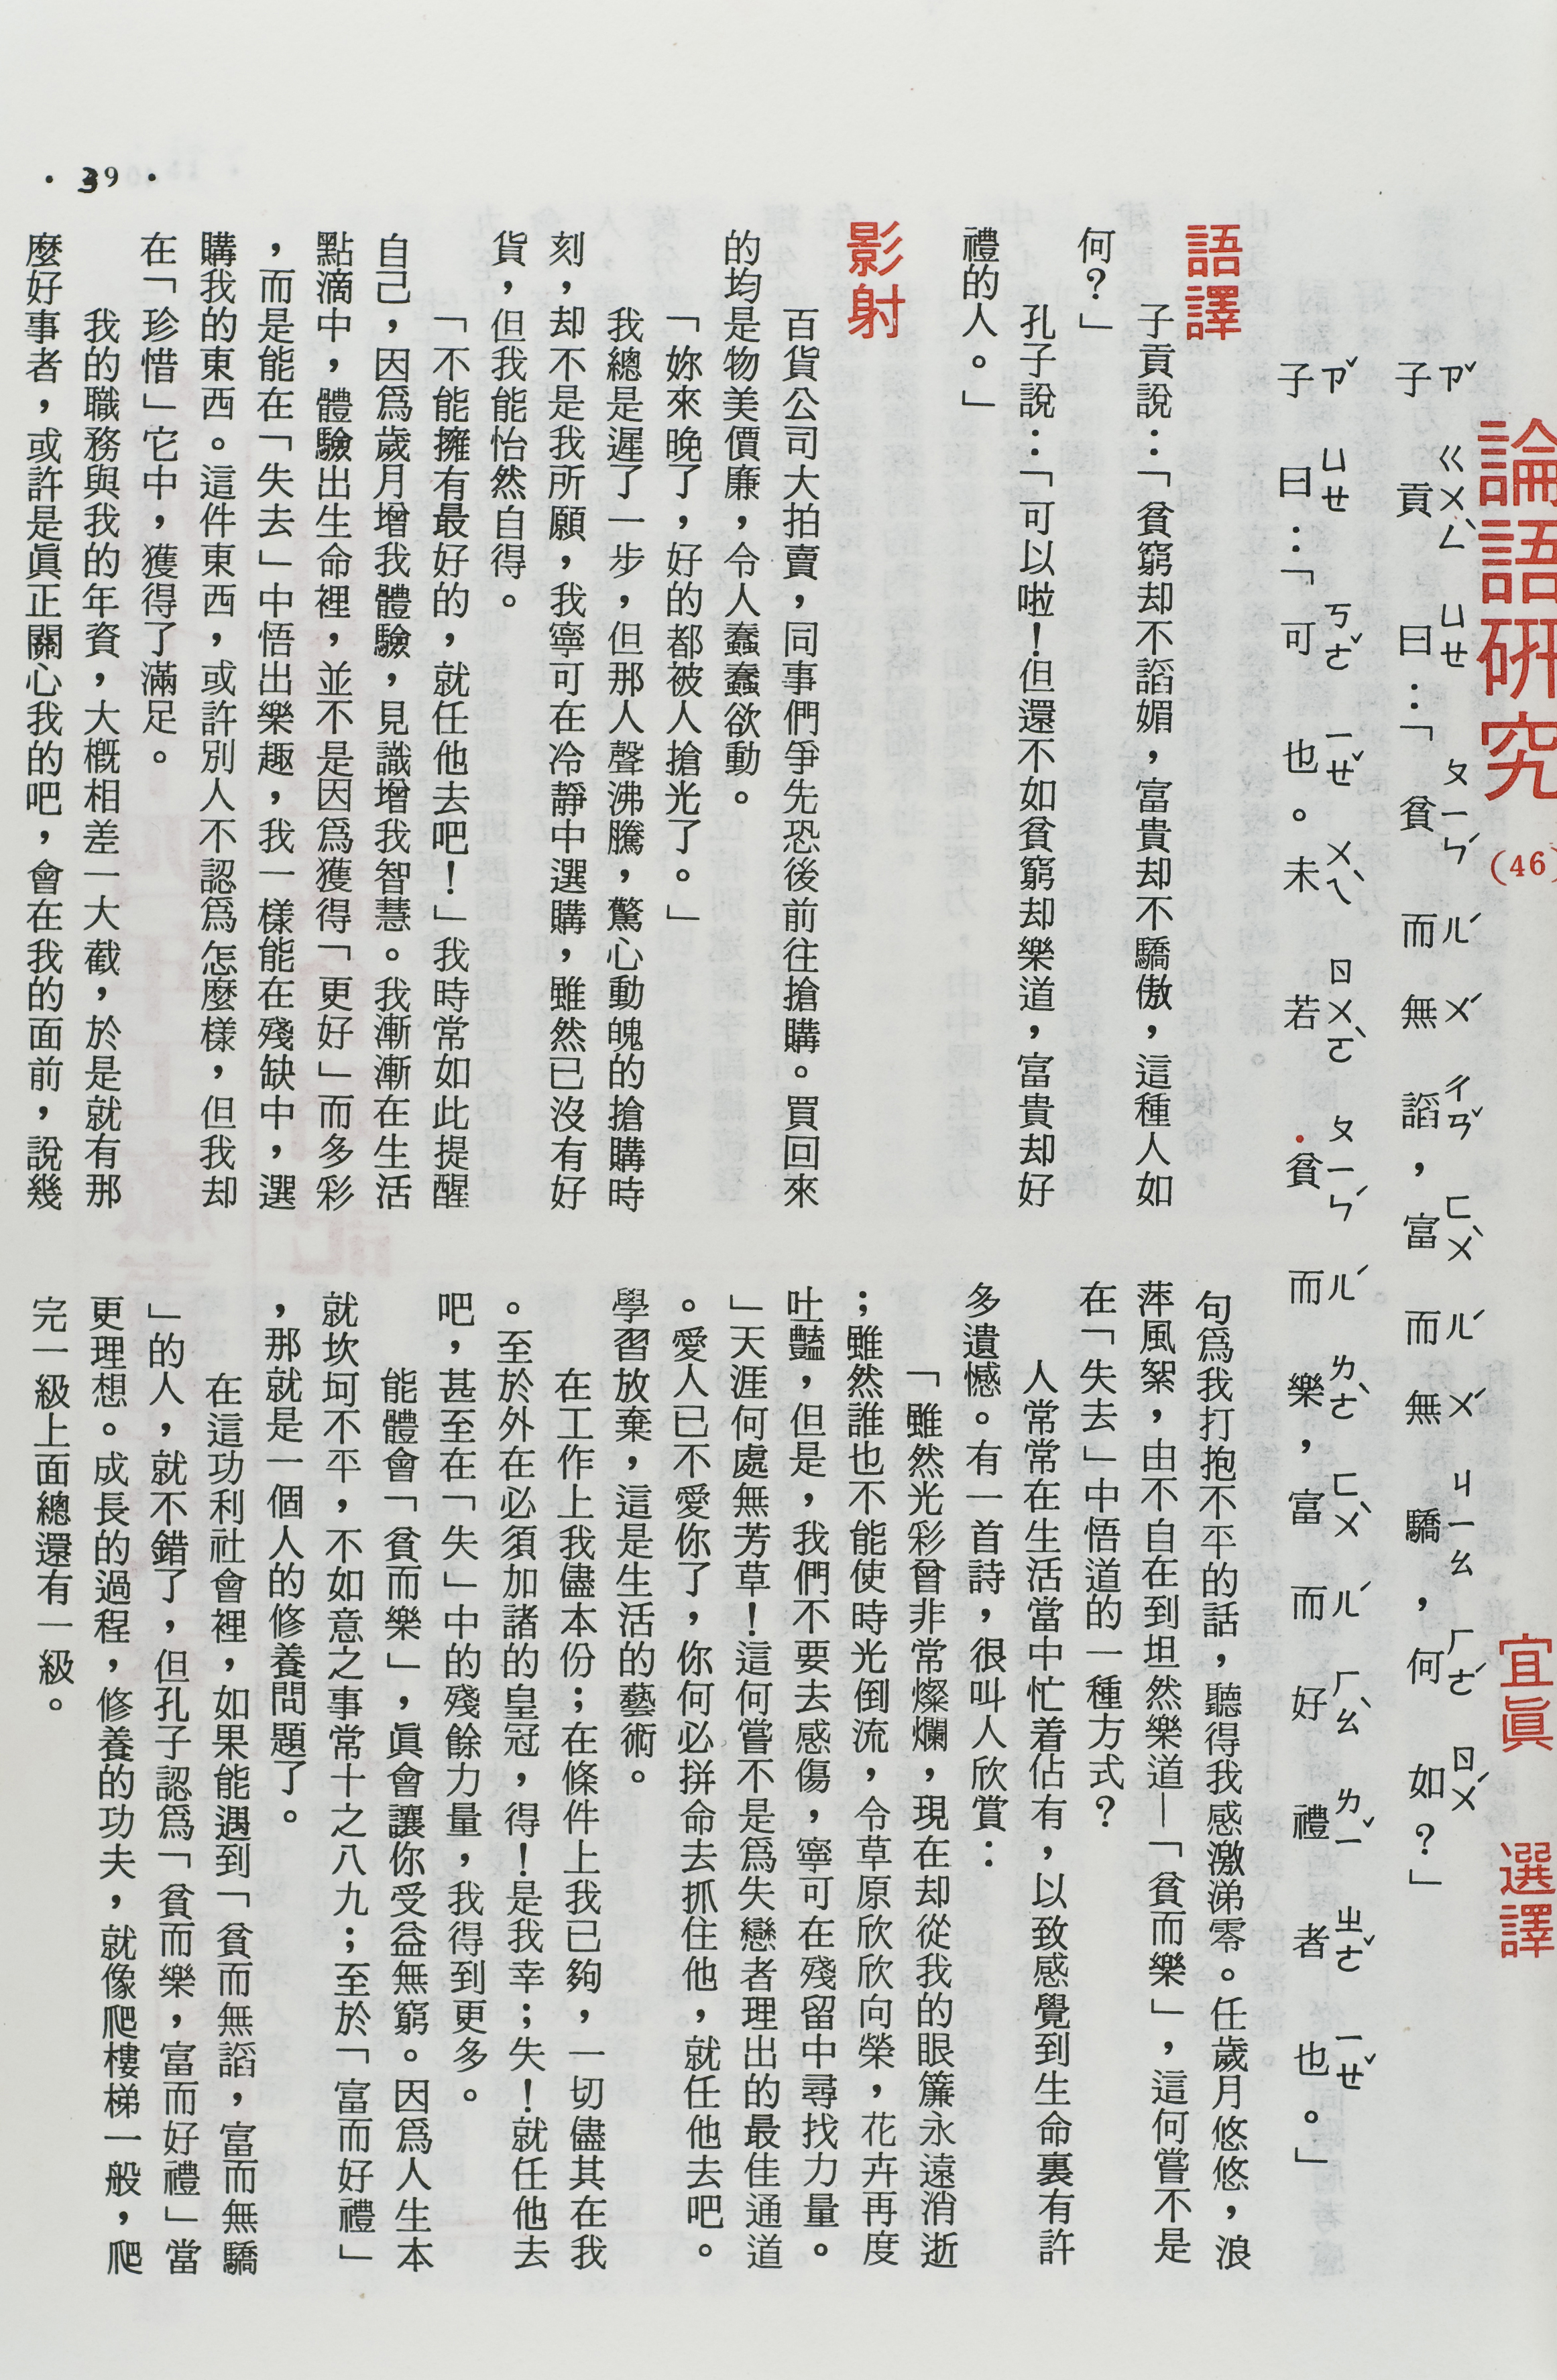 論語研究(46)
宜眞 選譯
子ㄗˇ貢ㄍㄨㄥˋ曰ㄩㄝ：「貧ㄆㄧㄣˊ而ㄦˊ無ㄨˊ諂ㄔㄢˇ，富ㄈㄨˋ而ㄦˊ無ㄨˊ驕ㄐㄧㄠ，何ㄏㄜˊ如ㄖㄨˊ？」
子ㄗˇ曰ㄩㄝ：「可ㄎㄜˇ也ㄧㄝˇ。未ㄨㄟˋ若ㄖㄨㄛˋ貧ㄆㄧㄣˊ而ㄦˊ樂ㄌㄜˋ，富ㄈㄨˋ而ㄦˊ好ㄏㄠˋ禮ㄌㄧˇ者ㄓㄜˇ也ㄧㄝˇ。」
語譯
子貢說：「貧窮却不諂媚，富貴却不驕傲，這種人如
何？」
孔子說：「可以啦！但還不如貧窮却樂道，富貴却好
禮的人。」
影射
百貨公司大拍賣，同事們爭先恐後前往搶購。買回來
的均是物美價廉，令人蠢蠢欲動。
「妳來晚了，好的都被人搶光了。」
我總是遲了一步，但那人聲沸騰，驚心動魄的搶購時
刻，却不是我所願，我寧可在冷靜中選購，雖然已沒有好
貨，但我能怡然自得。
「不能擁有最好的，就任他去吧！」我時常如此提醒
自己，因爲歲月增我體驗，見識增我智慧。我漸漸在生活
點滴中，體驗出生命裡，並不是因爲獲得「更好」而多彩
，而是能在「失去」中悟出樂趣，我一樣能在殘缺中，選
購我的東西。這件東西，或許別人不認爲怎麼樣，但我却
在「珍惜」它中，獲得了滿足。
我的職務與我的年資，大概相差一大截，於是就有那
麼好事者，或許是眞正關心我的吧，會在我的面前，說幾
句爲我打抱不平的話，聽得我感激涕零。任歲月悠悠，浪
萍風絮，由不自在到坦然樂道—「貧而樂」，這何嘗不是
在「失去」中悟道的一種方式？
人常常在生活當中忙着佔有，以致感覺到生命裏有許
多遺憾。有一首詩，很叫人欣賞：
「雖然光彩曾非常燦爛，現在却從我的眼簾永遠消逝
；雖然誰也不能使時光倒流，令草原欣欣向榮，花卉再度
吐豔，但是，我們不要去感傷，寧可在殘留中尋找力量。
」天涯何處無芳草！這何嘗不是爲失戀者理出的最佳通道
。愛人已不愛你了，你何必拼命去抓住他，就任他去吧。
學習放棄，這是生活的藝術。
在工作上我儘本份；在條件上我已夠，一切儘其在我
。至於外在必須加諸的皇冠，得！是我幸；失！就任他去
吧，甚至在「失」中的殘餘力量，我得到更多。
能體會「貧而樂」，眞會讓你受益無窮。因爲人生本
就坎坷不平，不如意之事常十之八九；至於「富而好禮」
，那就是一個人的修養問題了。
在這功利社會裡，如果能遇到「貧而無諂，富而無驕
」的人，就不錯了，但孔子認爲「貧而樂，富而好禮」當
更理想。成長的過程，修養的功夫，就像爬樓梯一般，爬
完一級上面總還有一級。
・39・